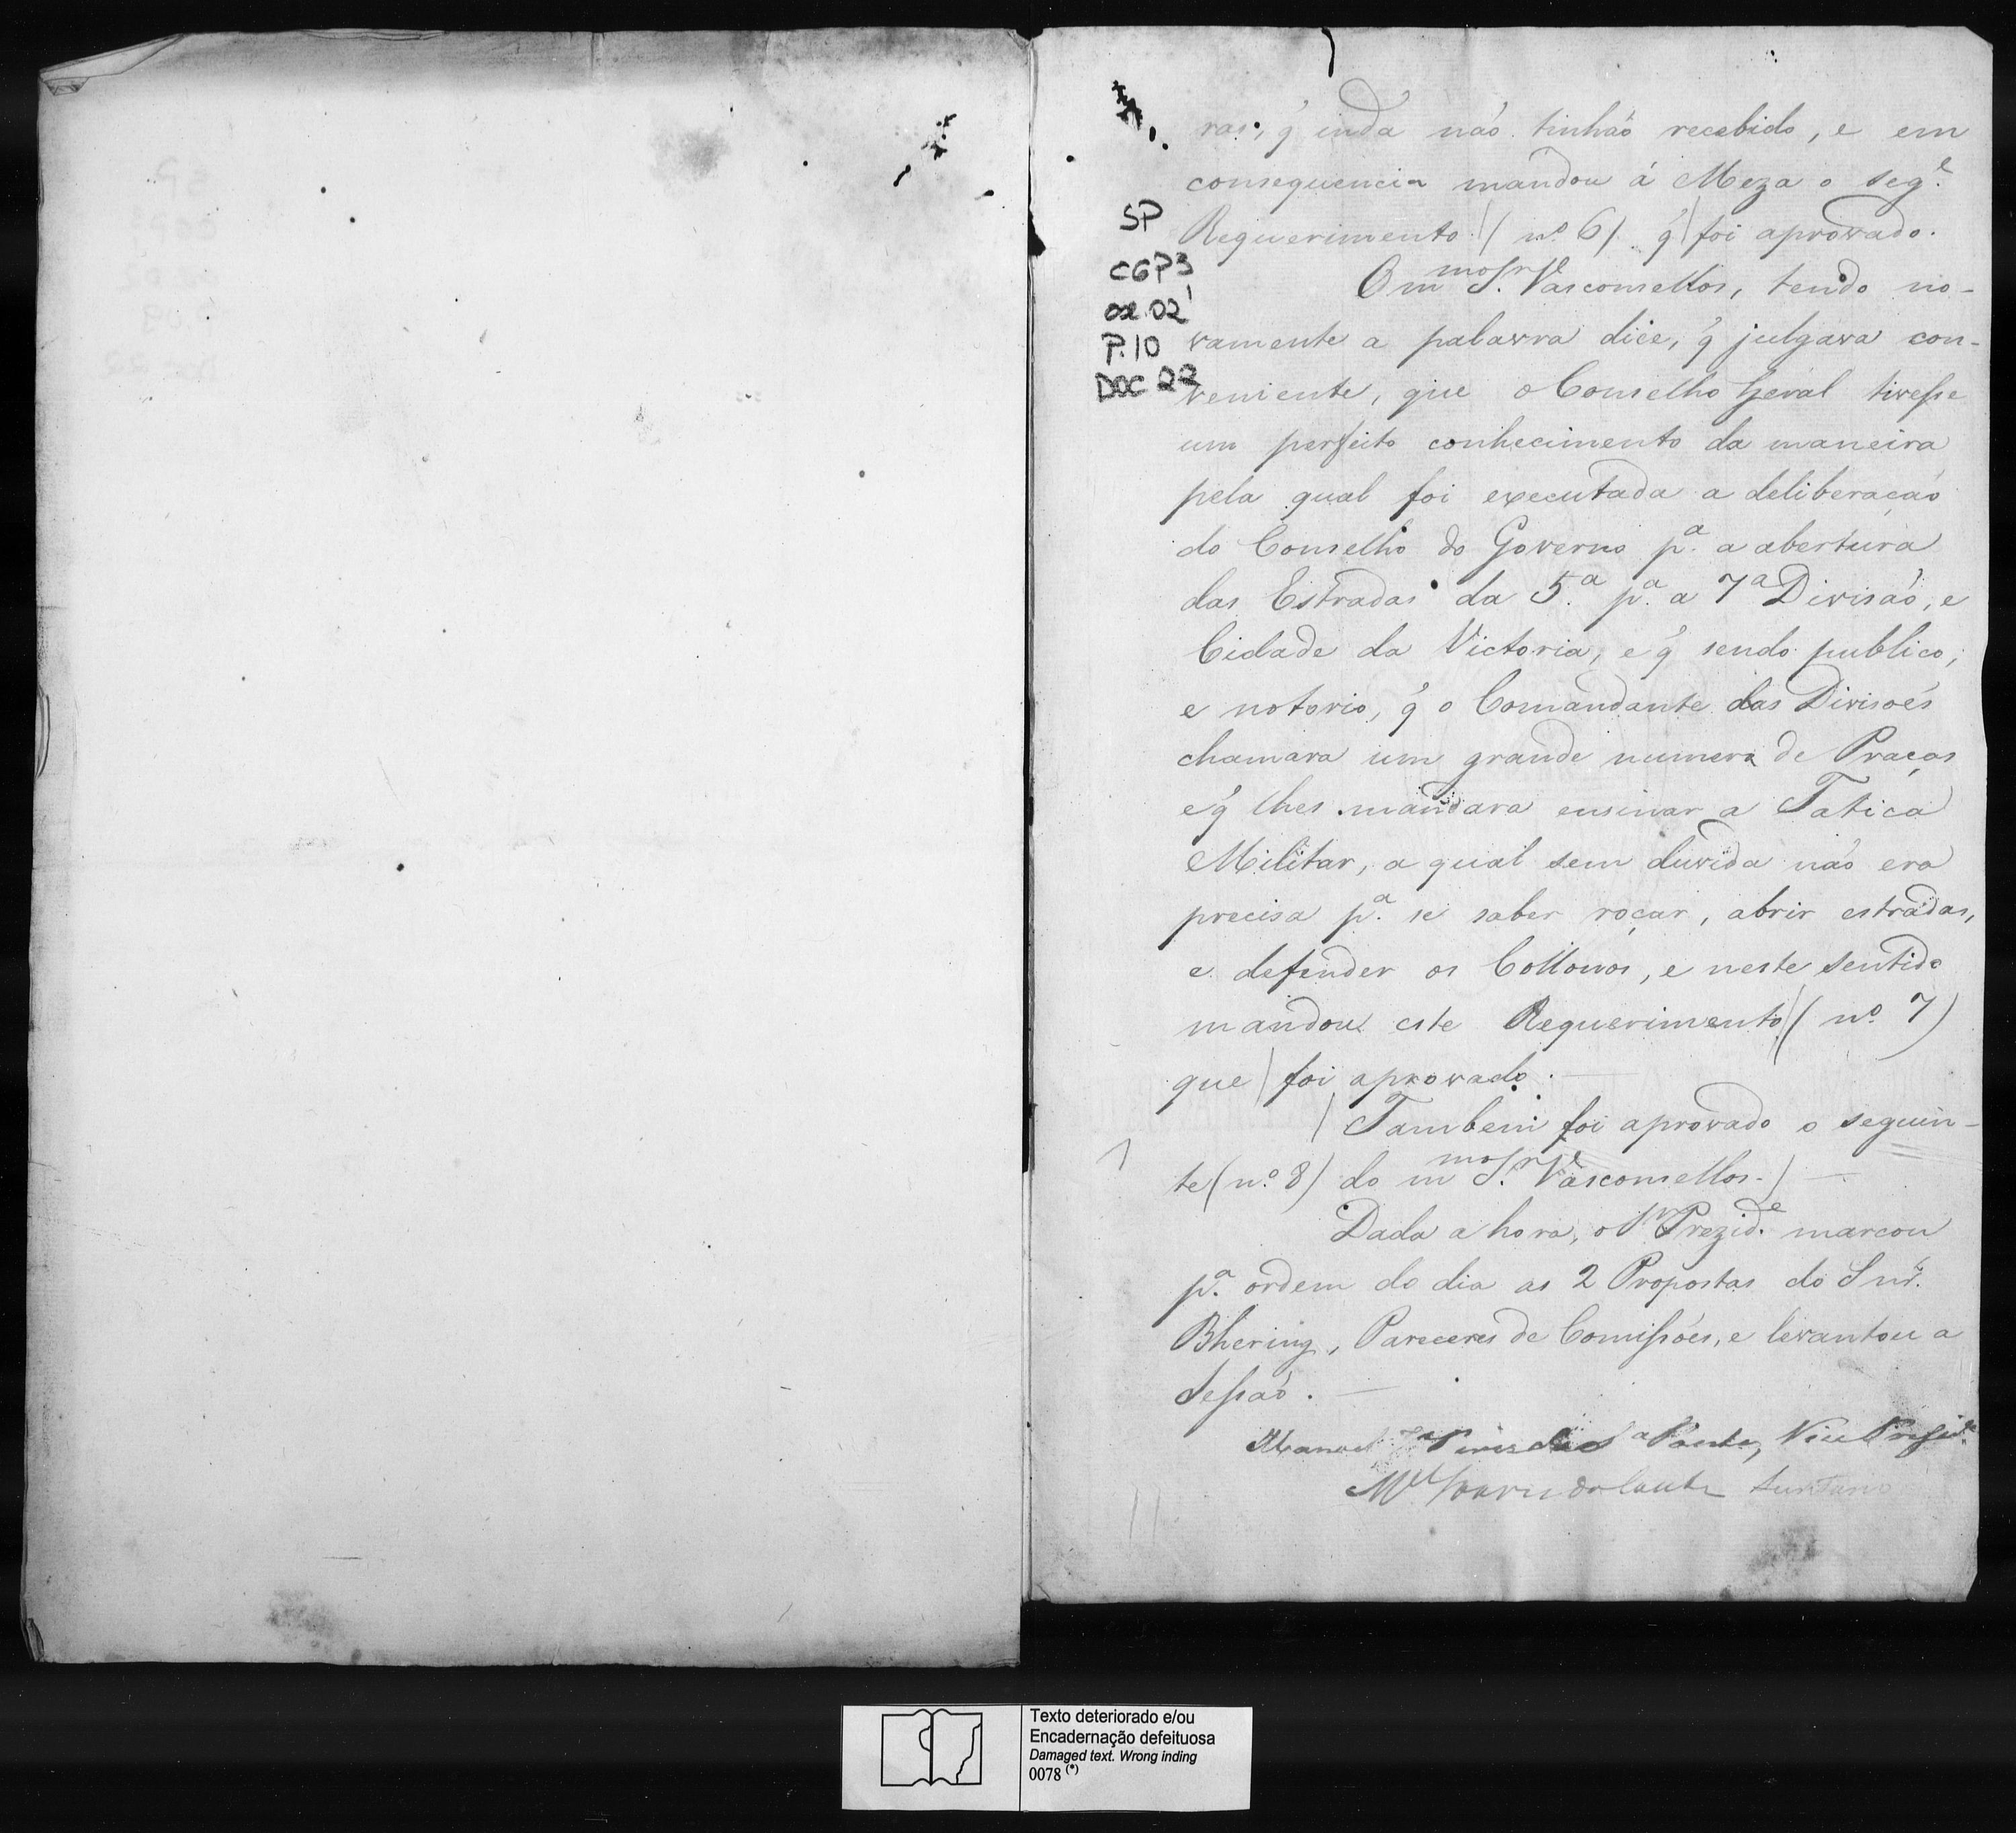 SP
CGP3
cx. 02
P. 10
DOC 22
ras, q̃ inda não tinhão recebido, e em
consequencia mandou á Meza o seg.e
Requerimento (nº 6) q̃ foi aprovado.
O m.mo S.r Vasconsellos, tendo no-
vamente a palavra dice, q̃ julgava con-
veniente, que o Conselho Geral tivesse
um perfeito conhecimento da maneira
pela qual foi executada a deliberação
do Conselho do Governo p.a a abertura
das Estradas da 5.a p.a a 7a Divisão, e
Cidade da Victoria, e q̃ sendo publico,
e notorio, q̃ o Comandante das Divisões
chamara um grande numero de Praças
e q̃ lhes mandara ensinar a Tatica
Militar, a qual sem duvida não era
precisa p.a se saber roçar, abrir estradas,
e defender os Collonos, e neste sentido
mandou este Requerimento (nº 7)
que foi aprovado.
Tambem foi aprovado o seguin-
te (nº 8) do m.mo S.r Vasconsellos.
Dada a hora, o Sr Prezid.e marcou
p.a ordem do dia as 2 Propostas do Snr.
Bhering, Pareceres de Comissões, e levantou a
Sessão.
Manoel Vice Presid.e
M.el
Texto deteriorado e/ou
Encadernação defeituosa
Damaged text. Wrong inding
0078 (*)